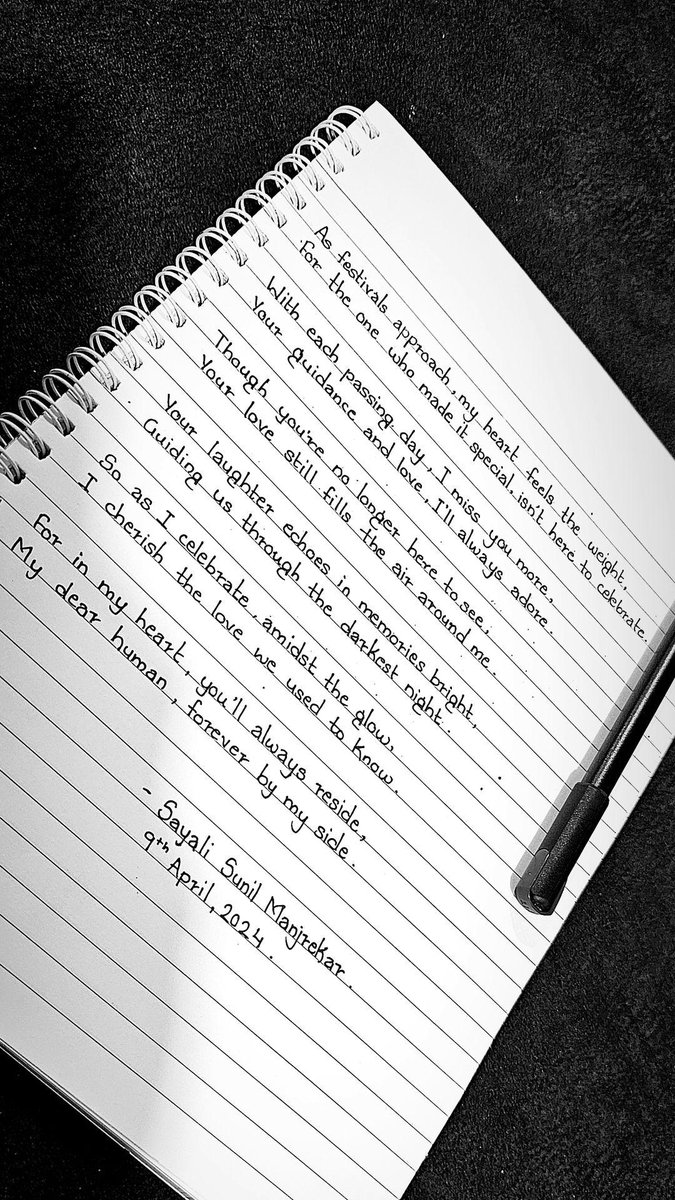 As festivals approach, my heart feels the weight,
For the one who made it special, isn't here to celebrate.
With each passing day, I miss you more,
Your guidance and love, I'll always adore.
Though you're no longer here to see,
Your love still fills the air around me.
Your laughter echoes in memories bright,
Guiding us through the darkest night.
So as I celebrate, amidst the glow,
I cherish the love we used to know.
For in my heart, you'll always reside,
My dear human, forever by my side.
- Sayali Sunil Manjrekar.
9th April, 2024.